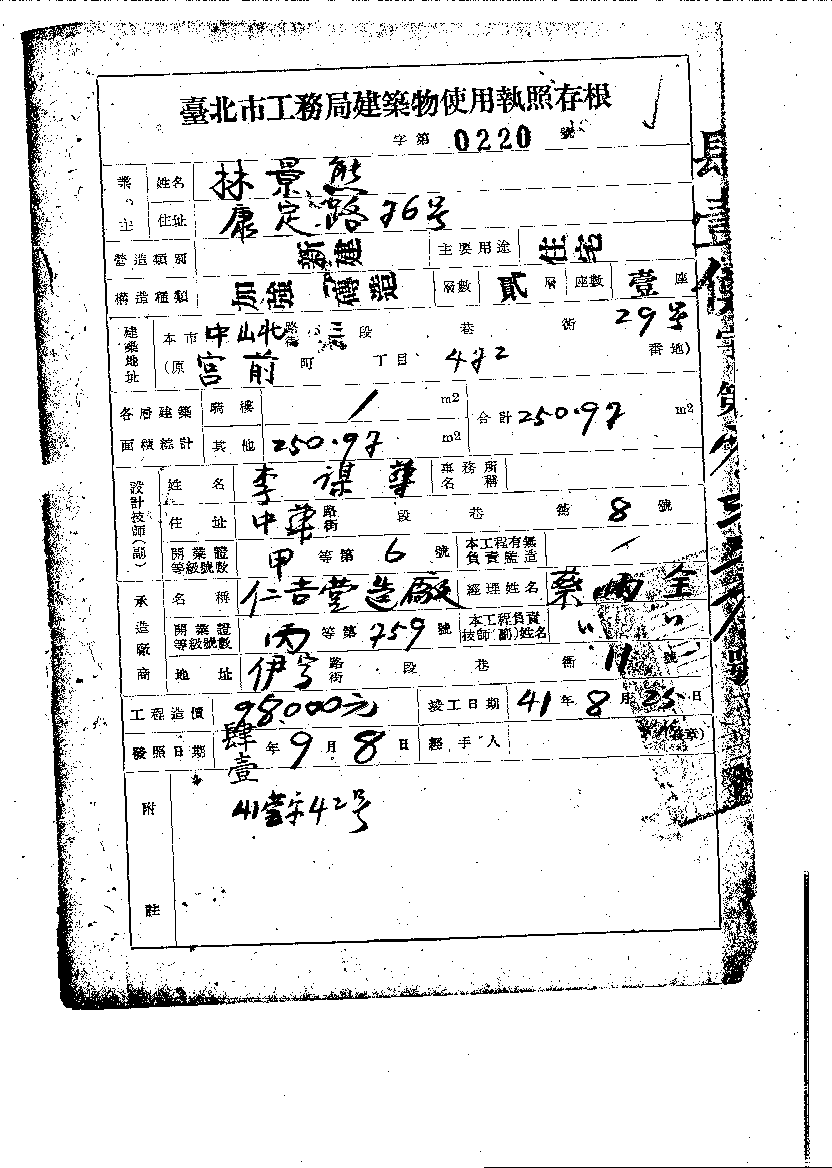 臺北市工務局建築物使用執照存根
字第 0220 號
業主 姓名 林景熊
住址 康定路76号
營造類別 新建 主要用途 住宅
構造種類 加強磚造 層數 貳 層 座數 壹 座
建築地址 本市中山北路街三段 巷 衖 29号
(原 宮前 町 丁目 472 番地)
各層建築面積總計 騎樓 / m2 合計 250.97 m2
其他 250.97 m2
設計技師(部) 姓名 李謀華 事務所名稱
住址 中華路街 段 巷 衖 8 號
開業證等級號數 甲 等第 6 號 本工程有無負責監造 /
承造廠商 名稱 仁吉營造廠 經理姓名 蔡 全
開業證等級號數 丙 等第 759 號 本工程負責技師(部)姓名 〃 〃
地址 伊寧路街 段 巷 衖 11 號
工程造價 98000元 竣工日期 41年8月25日
發照日期 肆壹年9月8日 經手人 (蓋章)
附註 41營字42号